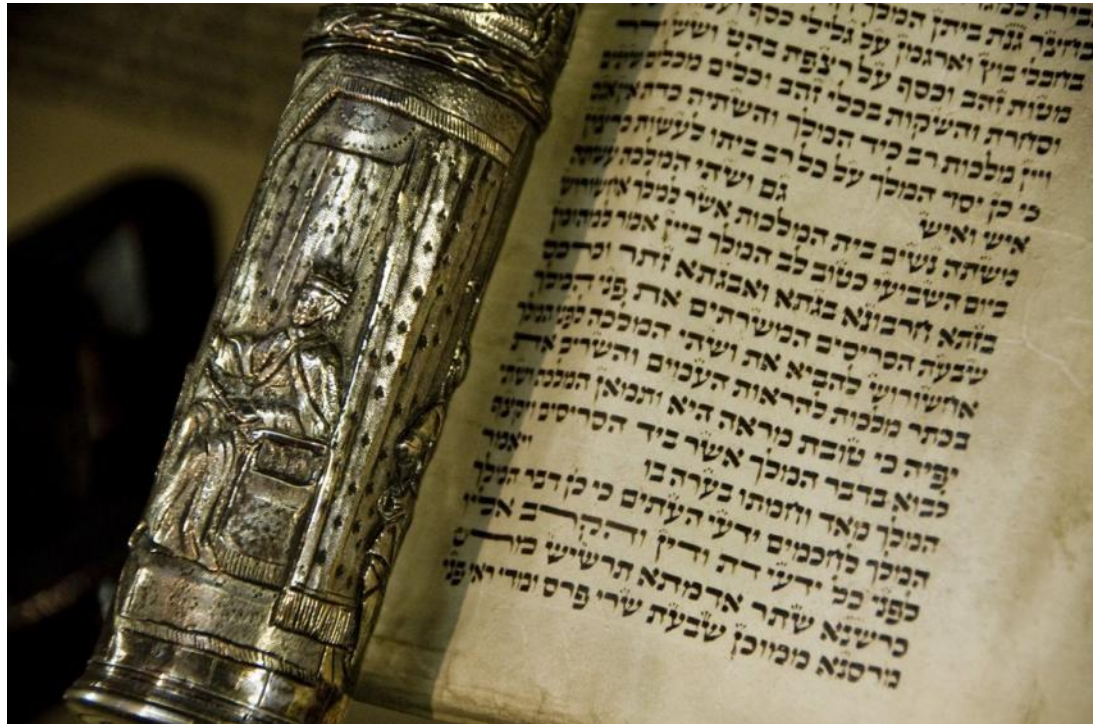 בחצר גנת ביתן המלך
בחבלי בוץ וארגמן על גלילי כסף
מטות זהב וכסף על רצפת בהט ושש ודר
וסחרת והשקות בכלי זהב וכלים מכלים שונים
ויין מלכות רב כיד המלך והשתיה כדת אין אנס
כי כן יסד המלך על כל רב ביתו לעשות כרצון
איש ואיש גם ושתי המלכה עשתה
משתה נשים בית המלכות אשר למלך אחשורוש
ביום השביעי כטוב לב המלך ביין אמר למהומן
בזתא חרבונא בגתא ואבגתא זתר וכרכס
שבעת הסריסים המשרתים את פני המלך
אחשורוש להביא את ושתי המלכה לפני המלך
בכתר מלכות להראות העמים והשרים את
יפיה כי טובת מראה היא ותמאן המלכה ושתי
לבוא בדבר המלך אשר ביד הסריסים ויקצף
המלך מאד וחמתו בערה בו ויאמר
המלך לחכמים ידעי העתים כי כן דבר המלך
לפני כל ידעי דת ודין והקרב אליו
כרשנא שתר אדמתא תרשיש מרס
מרסנא ממוכן שבעת שרי פרס ומדי ראי פני